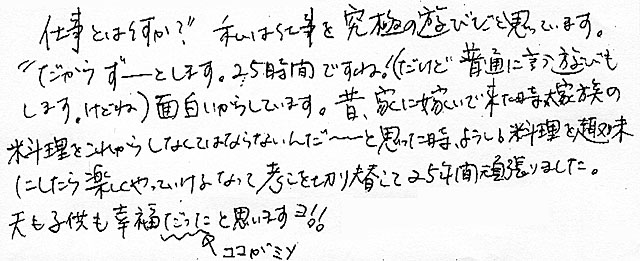 仕事とは何か? 私は仕事を究極の遊びだと思っています。
"だからずーーとします。25時間ですね!(だけど普通に言う遊びも
します。けどね)面白いからしています。昔、家に嫁いで来た時大家族の
料理をこれからしなくてはならないんだ〜〜と思った時、ようしも料理を趣味
にしたら楽しくやっていけるなって考えを切り替えて25年間頑張りました。
夫も子供も幸福だったと思いますヨ!!
ココがミソ